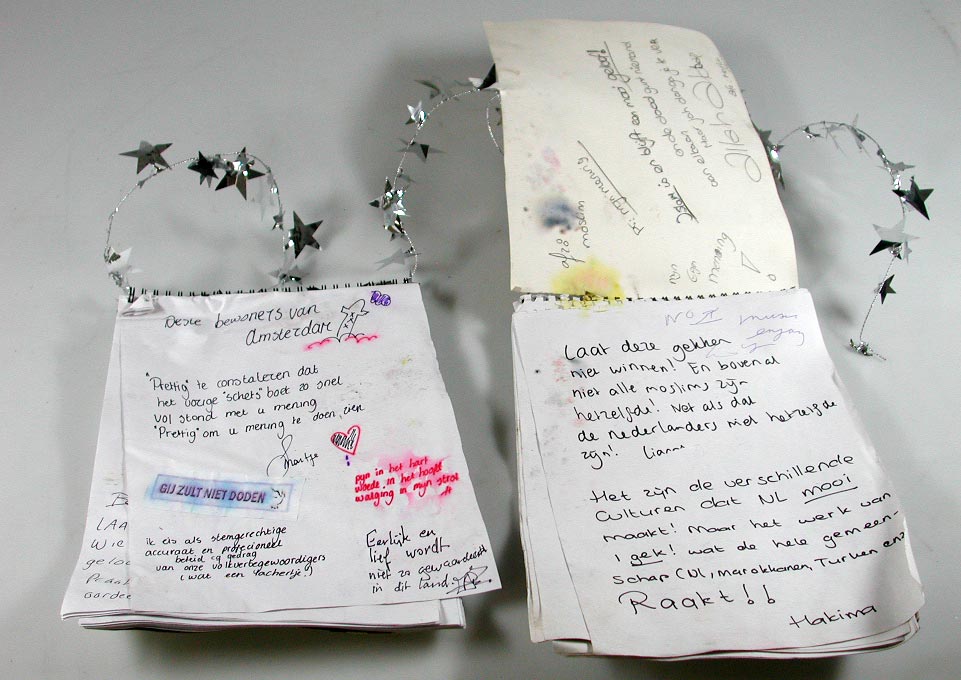 Deste bewoners van
Amsterdam
"Prettig" te constateren dat
het vorige "schets" boek zo snel
vol stond met u mening
"Prettig" om u mening te doen zien
Maartje
GIJ ZULT NIET DODEN
pijn in het hart
woede in het hoofd
walging in mijn strot
ik eis als stemgerechtige
accuraat en profesioneel
beleid cq gedrag
van onze volkvertegewoordigers
(wat een lachertje!)
Eerlijk en
lief wordt
niet zo gewaardeerd
in dit land.
LAA
Wie
gelo
Praat
Gardee
afzo
moslim
ps: mijn mening
Islam is en blijft een mooi geloof!
Laat deze gekken
niet winnen! En bovenal
niet alle moslims zijn
hetzelfde! Net als dat
de nederlanders niet hetzelfde
zijn! Lianne
Het zijn de verschillende
culturen dat NL mooi
maakt! Maar het werk van
1 gek! wat de hele gemeen-
schap (NL, marokkanen, Turken enz
Raakt!!
Hakima